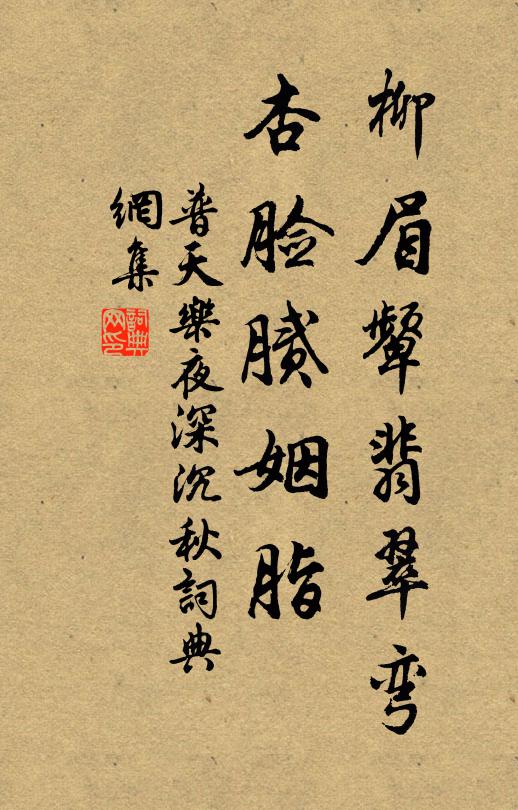 柳眉顰翡翠弯
杏脸腻姻脂
普天樂夜深沉秋詞典
網集
詞典
网印